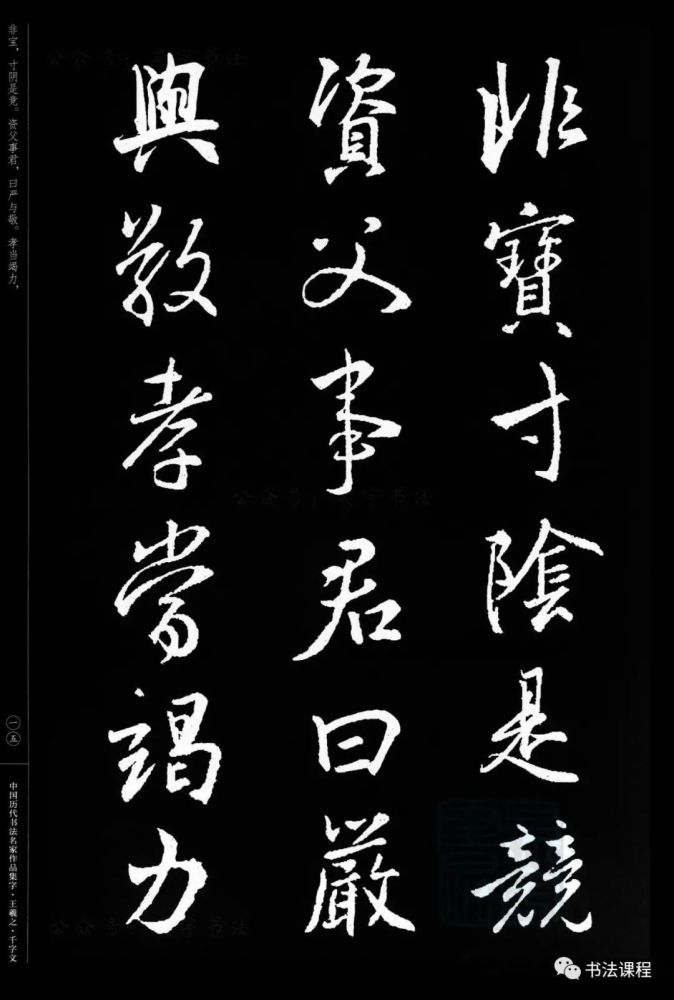 非寶寸陰是競
資父事君曰嚴
與敬孝當竭力
非宝，寸阴是竟。资父事君，曰严与敬。孝当竭力，
一五
中国历代书法名家作品集字·王羲之·千字文
书法课程